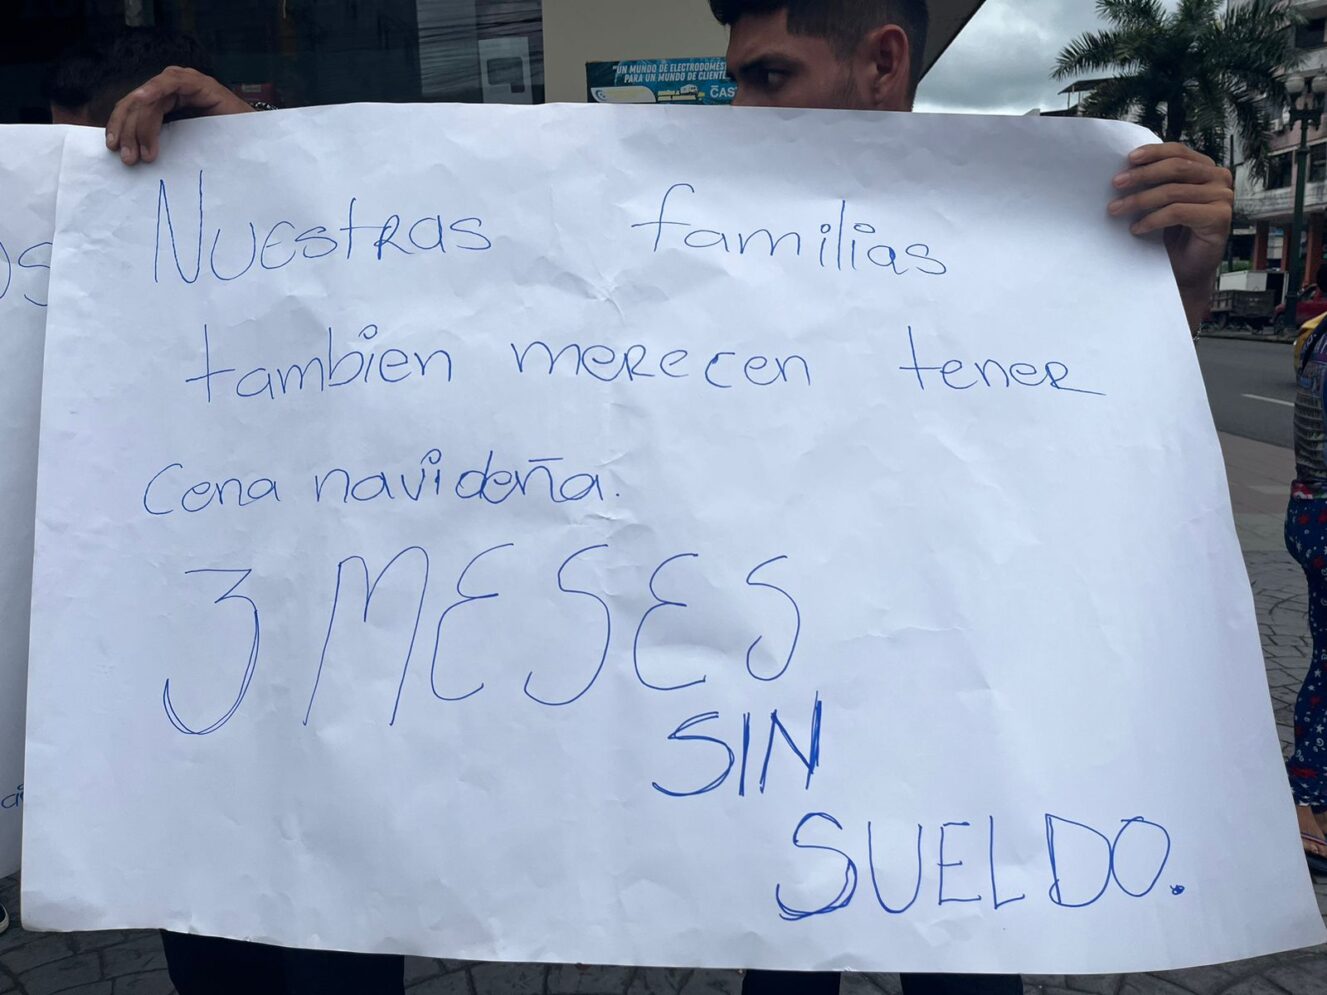 "UN MUNDO DE ELECTRODOMÉS
PARA UN MUNDO DE CLIENTE
CAS
Nuestras familias
tambien merecen tener
cena navideña.
3 MESES
SIN
SUELDO.
os